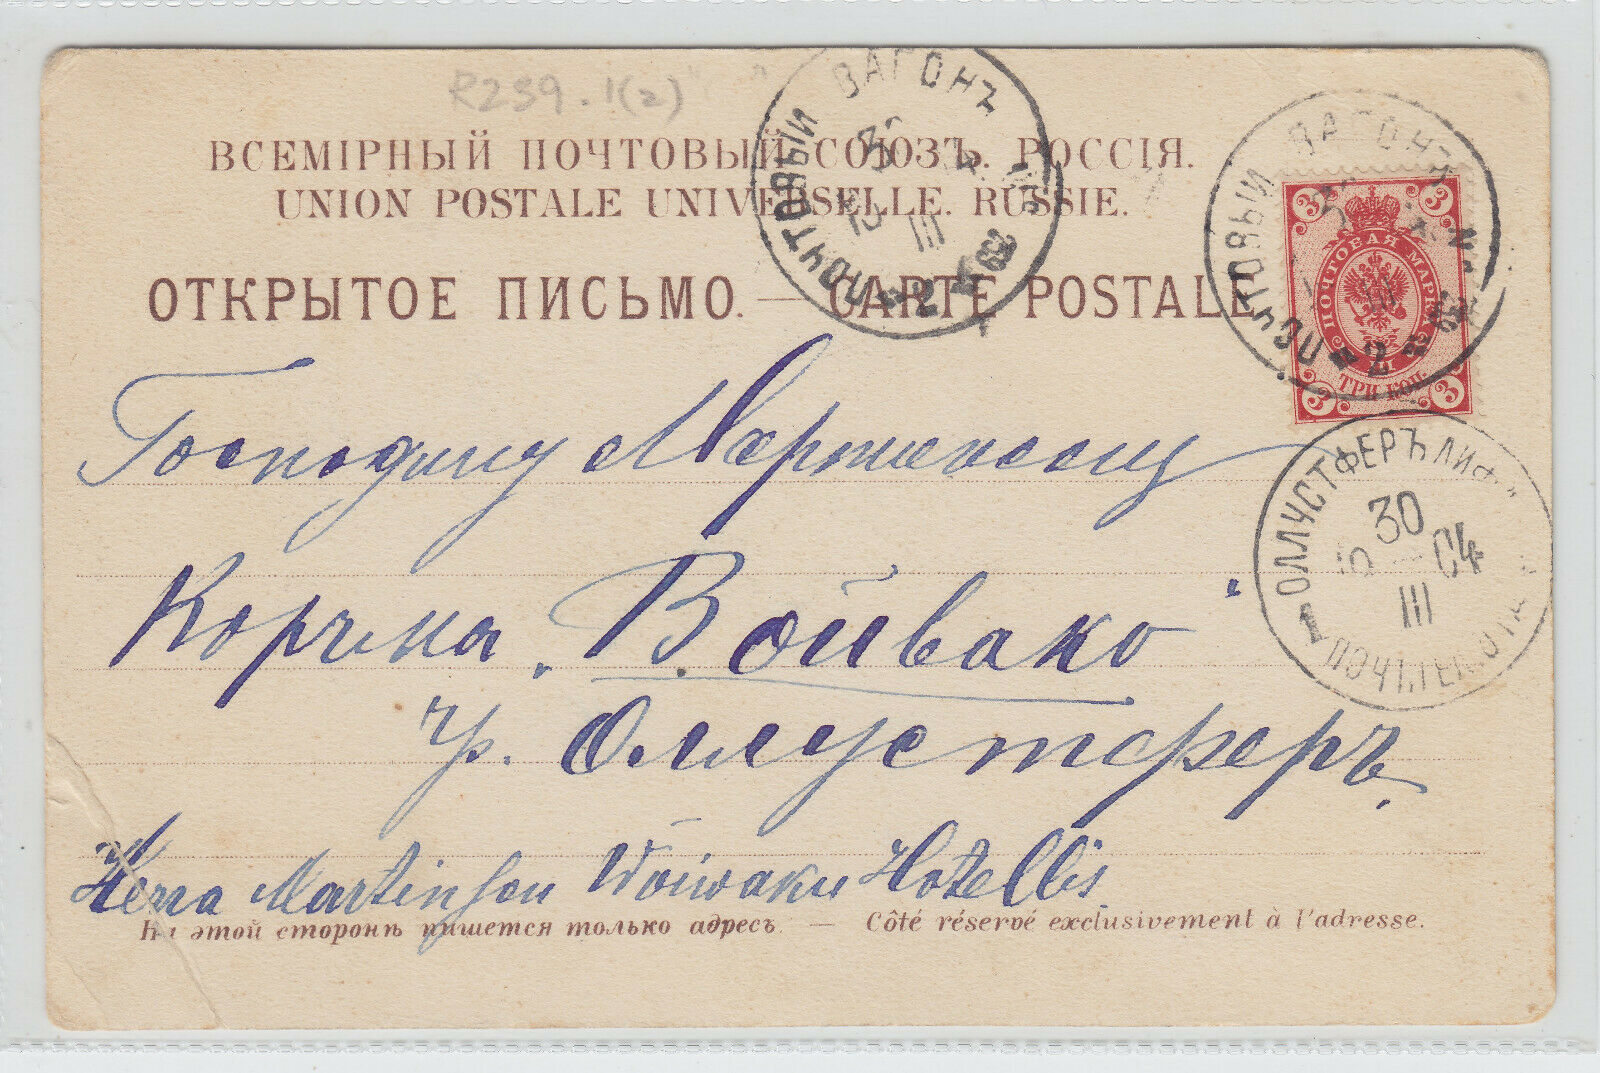 R239.1(2)
ВСЕМІРНЫЙ ПОЧТОВЫЙ СОЮЗЪ. РОССІЯ.
UNION POSTALE UNIVERSELLE. RUSSIE.
ОТКРЫТОЕ ПИСЬМО. — CARTE POSTALE
ПОЧТОВЫЙ ВАГОНЪ
III
2
ПОЧТОВЫЙ ВАГОНЪ
2
3 3
ПОЧТОВАЯ МАРКА
ТРИ КОП.
3 3
Господину Мартенсону
Корчма „Войвако“
ОЛЛУСТФЕРЪ ЛИФЛ
30
5 04
III
1
чр. Оллустферъ.
Herra Martinson Woiwaku Hotellis
На этой сторонѣ пишется только адресъ. — Côté réservé exclusivement à l'adresse.